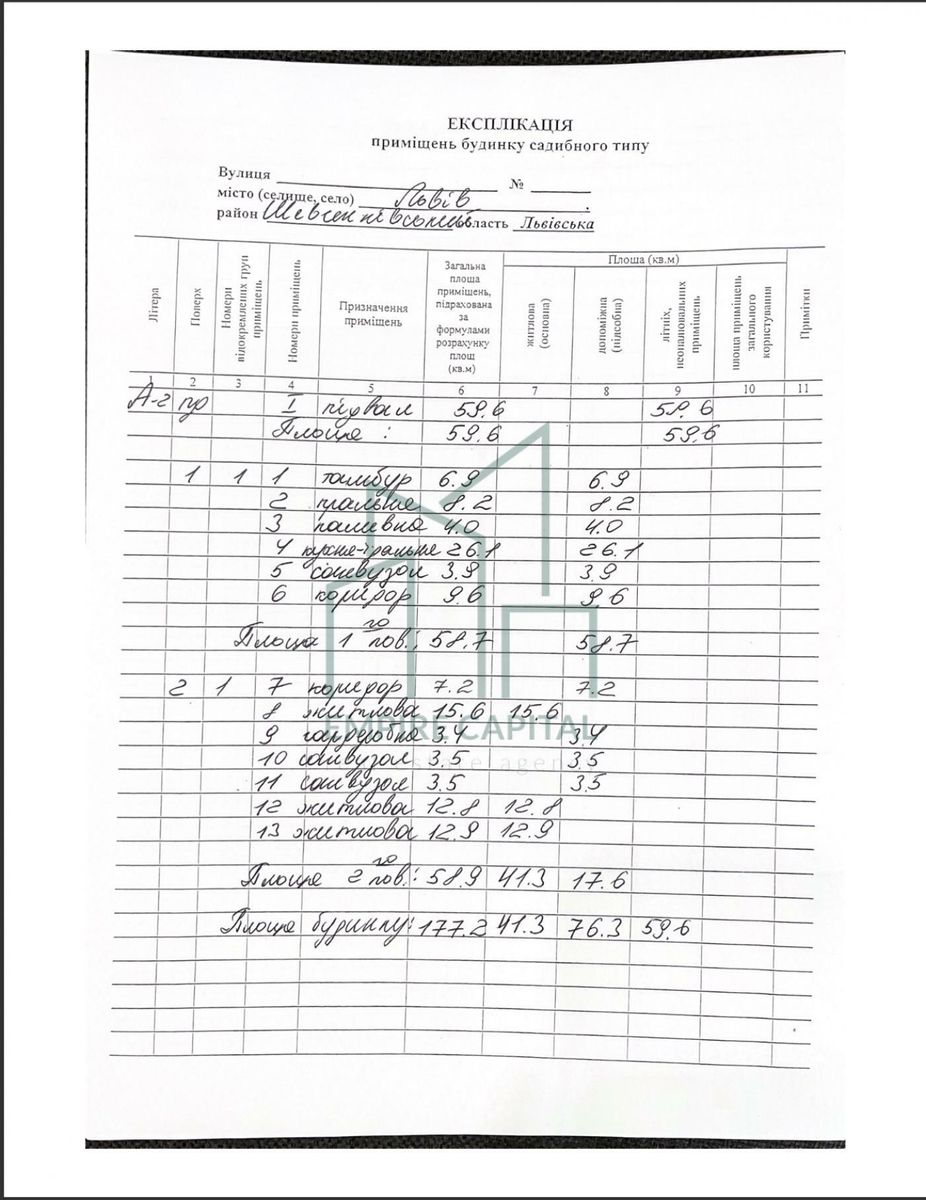 ЕКСПЛІКАЦІЯ
приміщень будинку садибного типу
Вулиця №
місто (селище, село) Львів
район Шевченківський область Львівська
Літера
Поверх
Номери відокремлених груп приміщень
Номери приміщень
Призначення приміщень
Загальна площа приміщень, підрахована за формулами розрахунку площ (кв.м)
Площа (кв.м)
житлова (основна)
допоміжна (підсобна)
літніх, неопалювальних приміщень
площа приміщень загального користування
Примітки
1 2 3 4 5 6 7 8 9 10 11
А-2 пд I підвал 59.6 59.6
Площа : 59.6 59.6
1 1 1 тамбур 6.9 6.9
2 пральня 8.2 8.2
3 паливна 4.0 4.0
4 кухня-їдальня 26.1 26.1
5 санвузол 3.9 3.9
6 коридор 9.6 9.6
Площа 1го пов.: 58.7 58.7
2 1 7 коридор 7.2 7.2
8 житлова 15.6 15.6
EMPIRE CAPITAL
9 гардеробна 3.4 3.4
10 санвузол 3.5 3.5
estate agency
11 санвузол 3.5 3.5
12 житлова 12.8 12.8
13 житлова 12.9 12.9
Площа 2го пов.: 58.9 41.3 17.6
Площа будинку: 177.2 41.3 76.3 59.6